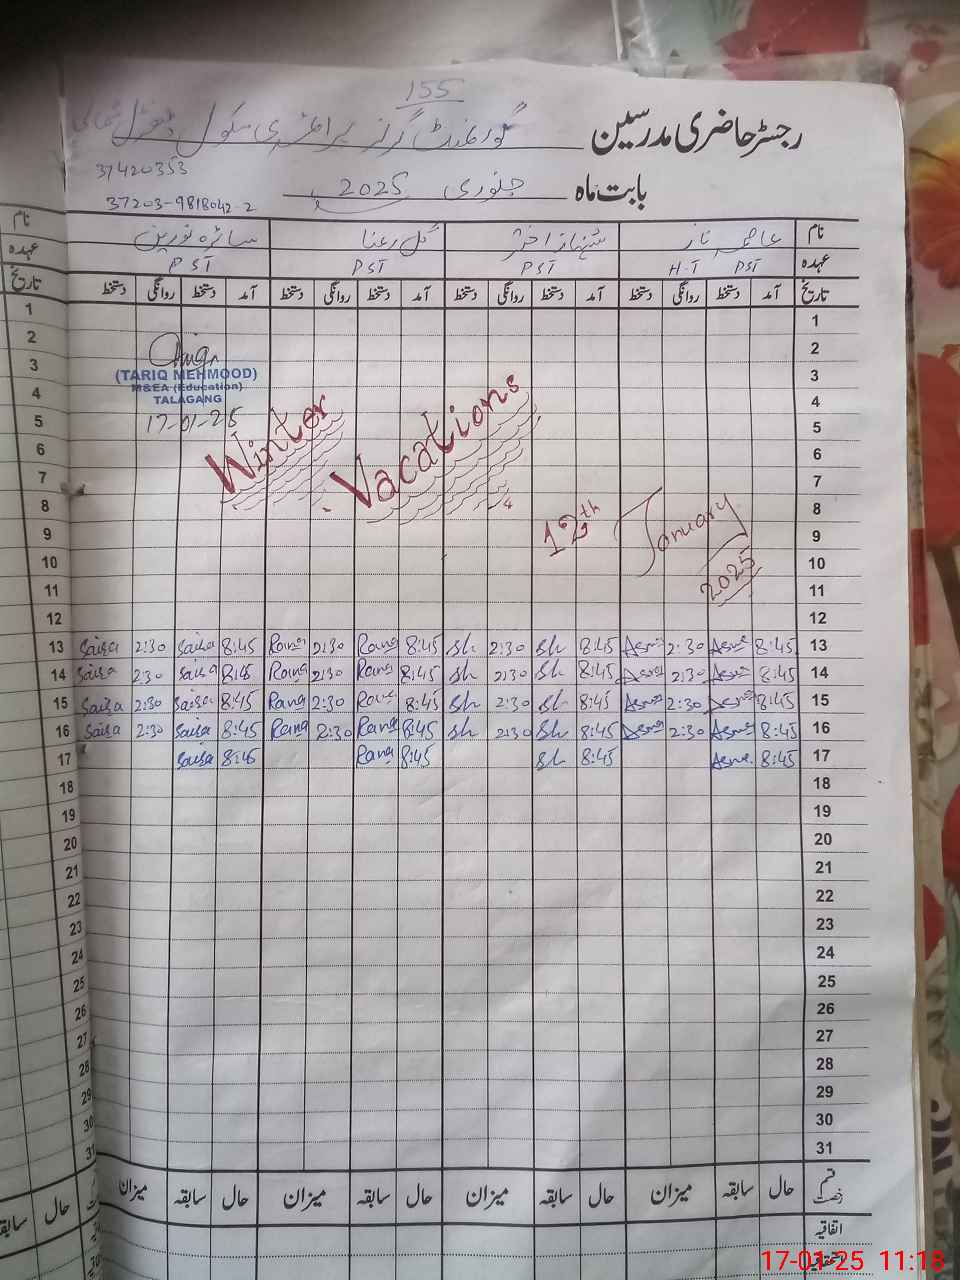 155
رجسٹر حاضری مدرسین گورنمنٹ گرلز پرائمری سکول ڈھوک شمالی
37420353
بابت ماہ جنوری 2025
37203-9818042-2
نام عاصمہ ناز شہناز اختر گل رعنا سائرہ نورین نام
عہدہ PST H.T PST PST PST عہدہ
تاریخ آمد دستخط روانگی دستخط آمد دستخط روانگی دستخط آمد دستخط روانگی دستخط آمد دستخط روانگی دستخط تاریخ
1 1
2 2
3 3
(TARIQ MEHMOOD)
M&EA (Education)
TALAGANG
4 4
17-01-25
5 5
6 6
Winter Vacations
7 7
8 8
12th January 2025
9 9
10 10
11 11
12 12
13 Saira 2:30 Saira 8:45 Rana 2:30 Rana 8:45 Sh 2:30 Sh 8:45 Asma 2:30 Asma 8:45 13
14 Saira 2:30 Saira 8:45 Rana 2:30 Rana 8:45 Sh 2:30 Sh 8:45 Asma 2:30 Asma 8:45 14
15 Saira 2:30 Saira 8:45 Rana 2:30 Rana 8:45 Sh 2:30 Sh 8:45 Asma 2:30 Asma 8:45 15
16 Saira 2:30 Saira 8:45 Rana 2:30 Rana 8:45 Sh 2:30 Sh 8:45 Asma 2:30 Asma 8:45 16
17 Saira 8:45 Rana 8:45 Sh 8:45 Asma 8:45 17
18 18
19 19
20 20
21 21
22 22
23 23
24 24
25 25
26 26
27 27
28 28
29 29
30 30
31 31
قسم رخصت حال سابقہ میزان حال سابقہ میزان حال سابقہ میزان حال سابقہ میزان حال سابقہ
اتفاقیہ
استحقاقیہ
17-01-25 11:18